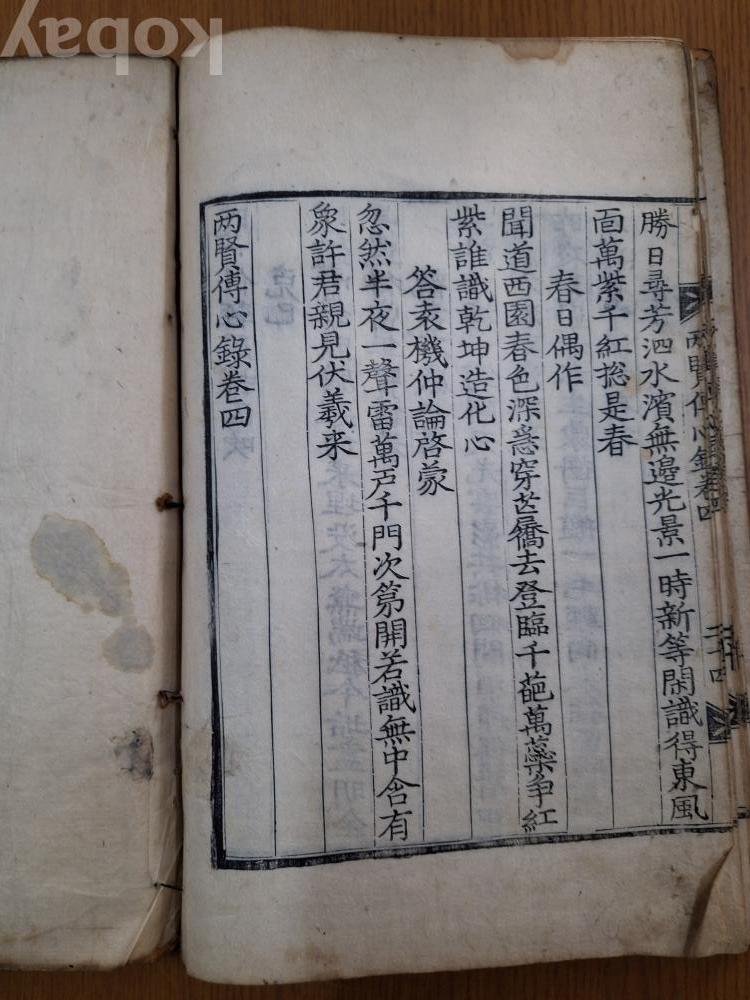 勝日尋芳泗水濱無邊光景一時新等閑識得東風
靣萬紫千紅捴是春
春日偶作
聞道西園春色深急穿芒屩去登臨千葩萬蘂争紅
紫誰識乾坤造化心
答袁機仲論啓蒙
忽然半夜一聲雷萬戸千門次苐開若識無中含有
象許君親見伏羲来
两賢傳心錄卷四
两賢傳心錄卷四
二十四
kobay